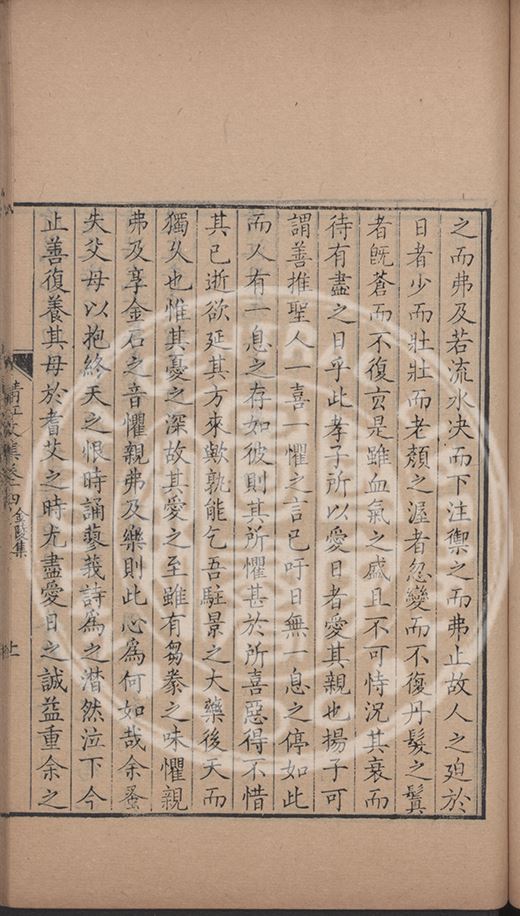 之而弗及若流水决而下注禦之而弗止故人之迫於
日者少而壯壯而老頽之渥者忽變而不復丹髮之鬒
者旣蒼而不復玄是雖血氣之盛且不可恃況其衰而
待有盡之日乎此孝子所以愛日者愛其親也揚子可
謂善推聖人一喜一懼之言已吁日無一息之停如此
而人有一息之存如彼則其所懼甚於所喜惡得不惜
其已逝欲延其方來歟孰能乞吾駐景之大藥後天而
獨久也惟其憂之深故其愛之至雖有芻豢之味懼親
弗及享金石之音懼親弗及樂則此心爲何如哉余蚤
失父母以抱終天之恨時誦蓼莪詩爲之潸然泣下今
止善復養其母於耆艾之時尤盡愛日之誠益重余之
清江文集卷四金陵集
上